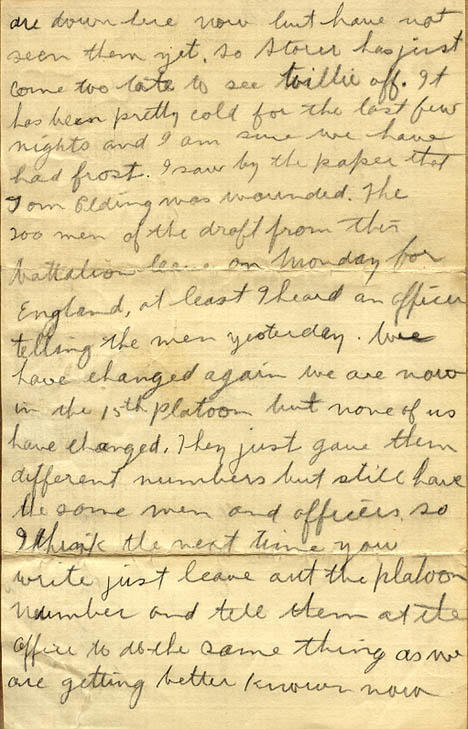 are down here now but have not
seen them yet, so Storer has just
come too late to see Willie off. It
has been pretty cold for the last few
nights and I am sure we have
had frost. I saw by the paper that
Tom Elding was wounded. The
200 men of the draft from this
battalion leave on Monday for
England, at least I heard an officer
telling the men yesterday. We
have changed again we are now
in the 15th platoon but none of us
have changed. They just gave them
different numbers but still have
the same men and officers, so
I think the next time you
write just leave out the platoon
number and tell them at the
office to do the same thing as we
are getting better known now